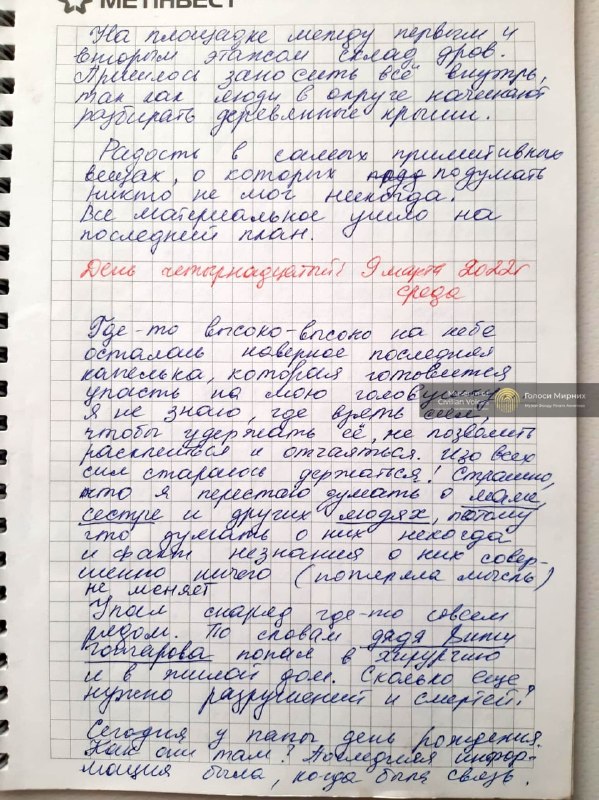 МЕТІНВЕСТ
На площадке между первым и
вторым этажом склад дров.
Пришлось заносить всё внутрь,
так как люди в округе начинают
разбирать деревянные крыши.
Радость в самых примитивных
вещах, о которых подумать
никто не мог никогда.
Все материальное ушло на
последний план.
День четырнадцатый! 9 марта 2022г
среда
Где-то высоко-высоко на небе
осталась наверное последняя
капелька, которая готовится
упасть на мою голову, но
я не знаю, где взять сил,
чтобы удержать её, не позволить
раскleиться и отчаяться. Изо всех
сил стараюсь держаться! Страшно,
что я перестаю думать о маме,
сестре и других людях, потому
что думать о них некогда
и факт незнания о них совер-
шенно ничего (потеряла мысль)
не меняет
Упал снаряд где-то совсем
рядом. По словам дяди Вити
Гончарова попал в хирургию
и в жилой дом. Сколько еще
нужно разрушений и смертей?
Сегодня у папы день рождения.
Как они там? Последняя инфор-
мация была, когда была связь.
Civilian Voices
Голоси Мирних
Музей Фонду Ріната Ахметова